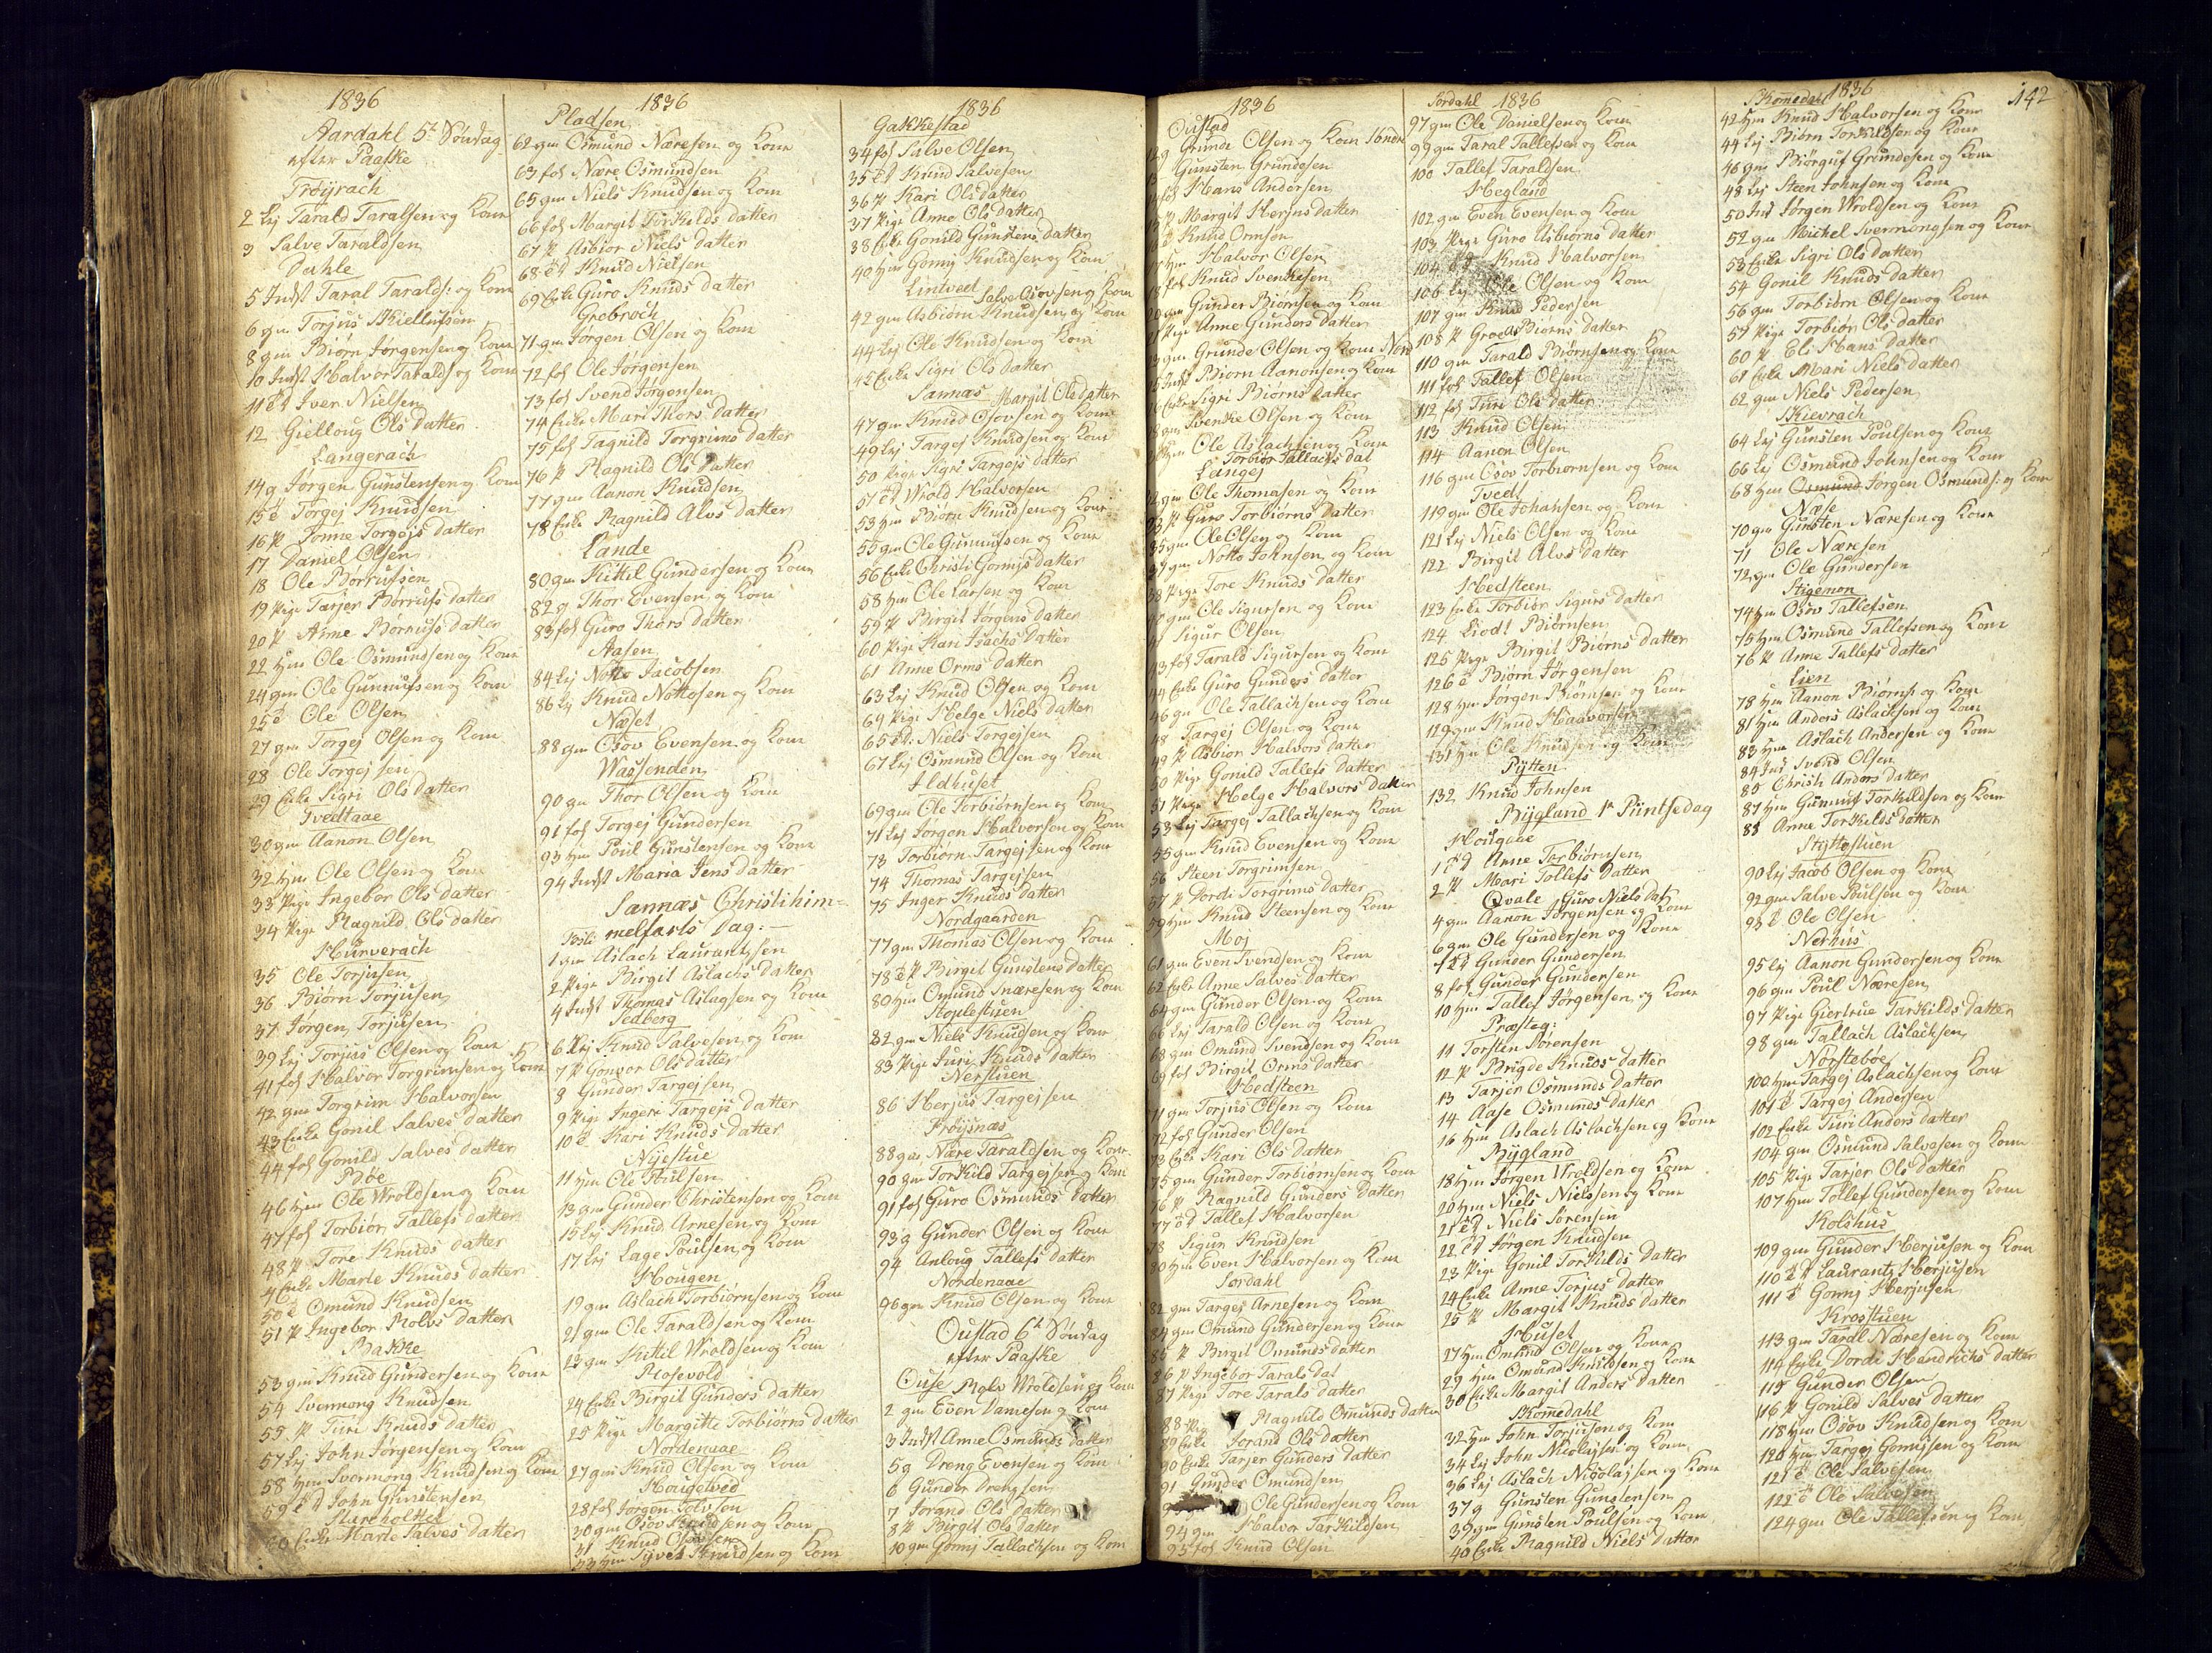 1836
Aardahl 5te Søndag
efter Paaske
Trøyrach
2 Lej Tarald Taralsen og Kone
3 Salve Taraldsen
Dahle
5 Indst Taral Taralds: og Kone
6 gm Torjus Kiellulsen
8 gm Biørn Jørgensen og Kone
10 Indst Halvor Taralds og Kone
11 Iver Nielsen
12 Gielloug Ols datter
Langerach
14 g Jørgen Gunstensen og Kone
15 Torgej Knudsen
16 P Tonne Torgejs datter
17 Daniel Olsen
18 Ole Børrufsen
19 Pige Tarjer Børrufs datter
20 P Anne Børrufs datter
22 Hm Ole Osmundsen og Kone
24 gm Ole Gunnufsen og Kone
25 Ole Olsen
27 gm Torgej Olsen og Kone
28 Ole Torgejsen
29 Enke Sigri Ols datter
Tvedtaae
30 gm Aanon Olsen
32 Hm Ole Olsen og Kone
33 Pige Ingebor Ols datter
34 Pige Ragnild Ols datter
Hurverach
35 Ole Torjusen
36 Biørn Torjusen
37 Jørgen Torjusen
39 Lej Torjus Olsen og Kone
41 fol Halvor Torgrimsen og Kone
42 gm Torgrim Halvorsen
43 Enke Gonil Salves datter
44 fol Gonild Salves datter
Bøe
46 Hm Ole Wroldsen og Kone
47 fol Torbiør Tallefs datter
48 P Tore Knuds datter
Enke Marte Knuds datter
50 Omund Knudsen
51 P Ingebor Rolvs datter
Bakke
53 gm Knud Gundersen og Kone
54 Svennong Knudsen
55 P Turi Knuds datter
57 Lej John Jørgensen og Kone
58 Hm Svennong Knudsen og Kone
59 John Gunstensen
Stareholttet
60 Enke Marte Salves datter
1836
Pladsen
62 gm Osmund Næresen og Kone
63 fol Nære Osmundsen
65 gm Niels Knudsen og Kone
66 fol Margit Torkelds datter
67 P Asbiør Niels datter
68 Knud Nielsen
69 Enke Guro Knuds datter
Grobroch
71 gm Jørgen Olsen og Kone
72 fol Ole Jørgensen
73 fol Svend Jørgensen
74 Enke Mari Thors datter
75 fol Tagnild Torgrims datter
76 P Ragnild Ols datter
77 gm Aanon Knudsen
78 Enke Ragnild Alvs datter
Lande
80 gm Kittil Gundersen og Kone
82 g Thor Evensen og Kone
83 fol Guro Thors datter
Aasen
84 Lej Notto Jacobsen
86 Lej Knud Nottosen og Kone
Næset
88 gm Osov Evensen og Kone
Wassenden
90 gm Thor Olsen og Kone
91 fol Torgej Gundersen
93 Hm Poul Gunstensen og Kone
94 Indst Maria Jens datter
Sannæs Christi him=
melfarts Dag:
1 gm Aslach Laurantsen
2 Pige Birgit Aslachs datter
4 Indst Thomas Aslagsen og Kone
Sedberg
6 Lej Knud Salvesen og Kone
7 P Gonvor Ols datter
8 Gunder Targejsen
9 Pige Ingeri Targejs datter
10 Kari Knuds datter
Nyestue
11 Hm Ole
13 gm Gunder Christensen og Kone
15 Lej Knud Arnesen og Kone
17 Lej Lage Poulsen og Kone
Hougen
19 gm Aslach Torbiørnsen og Kone
21 gm Ole Taraldsen og Kone
23 gm Kittil Wroldsen og Kone
Rosevold
24 Enke Birgit Gunders datter
25 Pige Margitte Torbiørns datter
Nordenaae
27 gm Knud Olsen og Kone
Hougetved
28 fol Jorgen
30 gm Osov Knudsen og Kone
31 Knud Osovsen
33 Hm Syvert Knudsen og Kone
1836
Gakkestad
34 fol Salve Olsen
35 Knud Salvesen
36 P Kari Ols datter
37 Pige Anne Ols datter
38 Enke Gonild Gunstens datter
40 Hm Gonnij Knudsen og Kone
Lintvedt Salve Osovsen og Kone
42 gm Asbiørn Knudsen og Kone
44 Lej Ole Knudsen og Kone
45 Enke Sigri Ols datter
Sannæs Margit Ols datter
47 gm Knud Osovsen og Kone
49 Lej Targej Knudsen og Kone
50 Pige Sigri Targejs datter
51 Wrold Halvorsen
53 Hm Biørn Knudsen og Kone
55 gm Ole Gunnufsen og Kone
56 Enke Christi Gonnijs datter
58 Hm Ole Larsen og Kone
59 P Birgit Jorgens datter
60 Pige Kari Isachs datter
61 Anne Orms datter
63 Lej Knud Olsen og Kone
64 Pige Helge Niels datter
65 Niels Torgejsen
67 Lej Osmund Olsen og Kone
Ildhuset
69 gm Ole Torbiørnsen og Kone
71 Lej Jørgen Halvorsen og Kone
73 Torbiørn Targejsen og Kone
74 Thomas Targejsen
75 Inger Knuds datter
Nordgaarden
77 gm Thomas Olsen og Kone
78 P Birgit Gunstens datter
80 Hm Omund Næresen og Kone
Stoplestuen
82 gm Niels Knudsen og Kone
83 Pige Turi Knuds datter
Nerstuen
86 Herjus Targejsen
Frøysnæs
88 gm Nære Taraldsen og Kone
90 gm Torkild Targejsen og Kone
91 fol Guro Osmunds datter
93 g Gunder Olsen og Kone
94 Anloug Tallefs datter
Nordenaae
96 gm Knud Olsen og Kone
Oustad 6te Søndag
efter Paaske
Ouse Rolv Wroldsen og Kone
2 gm Even og Kone
3 Indst Anne Osmunds datter
5 g Dreng Evensen og Kone
6 Gunder Drengsen
7 Jorand Ols datter
8 P Birgit Ols datter
10 gm Gonnij Tallachsen og Kone
1836
Oustad
Grunde Olsen og Kone
Gunsten Grundesen
Hans Andersen
P Margit Herjus datter
Knud Ormsen
Halvor Olsen
fol Knud Svenkesen
gm Gunder Biørnsen og Kone
Pige Anne Gunders datter
gm Grunde Olsen og Kone
Indst Biørn Aanonsen og Kone
Enke Sigri Biørns datter
gm Svenke Olsen og Kone
Ole Aslachsen og Kone
Torbiør Tallachs dat
Langej
gm Ole Thomasen og Kone
33 P Guro Torbiørns datter
35 gm Ole Olsen og Kone
37 gm Notto Johnsen og Kone
38 Pige Tore Knuds datter
40 gm Ole Sigursen og Kone
41 Sigur Olsen
43 fol Tarald Sigursen og Kone
44 Enke Guro Gunders datter
46 gm Ole Tallachsen og Kone
48 Targej Olsen og Kone
49 P Asbiør Halvors datter
50 Pige Gonild Tallefs datter
51 Pige Helge Halvors datter
53 Lej Targej Tallachsen og Kone
55 gm Knud Evensen og Kone
56 Steen Torgrimsen
57 P Dordi Torgrims datter
59 Hm Knud Steensen og Kone
Moj
61 gm Even Svendsen og Kone
62 Enke Anne Salves datter
64 gm Gunder Olsen og Kone
66 Lej Tarald Olsen og Kone
68 gm Omund Svendsen og Kone
69 fol Birgit Orms datter
Hedsteen
71 gm Torjus Olsen og Kone
72 fol Gunder Olsen
73 Enke Kari Ols datter
75 gm Gunder Torbiørnsen og Kone
76 P Ragnild Gunders datter
77 Tallef Halvorsen
78 Sigur Knudsen
80 Hm Even Halvorsen og Kone
Sordahl
82 gm Targej Arnesen og Kone
84 gm Omund Gundersen og Kone
85 P Birgit Omunds datter
86 P Ingebor Tarals Dat
87 Pige Tore Tarals datter
88 Pig Ragnild Omunds datter
89 Enke Jorand Ols datter
90 Enke Tarjer Gunders datter
91 Gunder Omundsen
Ole Gundersen og Kone
94 gm Halvor Tarkildsen
95 fol Knud Olsen
Sordahl 1836
97 gm Ole Danielsen og Kone
99 gm Taral Tallefsen og Kone
100 Tallef Taraldsen
Hegland
102 gm Even Evensen og Kone
103 Pige Guro Asbiørns datter
104 Knud Halvorsen
106 Lej Ole Olsen og Kone
107 gm Knud Pedersen
108 P Groe Asbiørns datter
110 gm Tarald Biørnsen og Kone
111 fol Tallef Olsen
112 fol Turi Ols datter
113 Knud Olsen
114 Aanon Olsen
116 gm Osov Torbiørnsen og Kone
Tvedt
119 gm Ole Johansen og Kone
121 Lej Niels Olsen og Kone
122 Birgit Alvs datter
Hedsteen
123 Enke Torbiør Sigurs datter
124 Liodt Biørnsen
125 Pige Birgit Biørns datter
126 Biørn Jørgensen
128 Hm Jørgen Biørnsen og Kone
129 gm Knud Haavorsen
131 Hm Ole Knudsen og Kone
Pytten
132 Knud Johnsen
Bygland 1te Pintsedag
Hougaae
1 Anne Torbiørnsen
2 P Mari Tollefs datter
Qvale Guro Niels Dat
4 gm Aanon Jørgensen og Kone
6 gm Ole Gundersen og Kone
7 Gunder Gundersen
8 fol Gunder Gundersen
10 Hm Tallef Jørgensen og Kone
Præsteg:
11 Torsten Sørensen
12 P Brigde Knuds datter
13 Tarjer Osmunds datter
14 Aase Osmunds datter
16 Hm Aslach Aslachsen og Kone
Bygland
18 Hm Jørgen Wroldsen og Kone
20 Hm Niels Nielssen og Kone
21 Niels Sørensen
22 Jørgen Knudsen
23 Pige Gonil Torkilds datter
24 Enke Anne Torjus datter
25 P Margit Knuds datter
Huset
27 Hm Omund Olsen og Kone
29 Hm Omund Knudsen og Kone
30 Enke Margit Anders datter
Skomedahl
32 Hm John Torjusen og Kone
34 Lej John Nicolajsen og Kone
36 Lej Aslach Nicolajsen og Kone
37 g Gunsten Gunstensen
39 gm Gunsten Poulsen og Kone
40 Enke Ragnild Niels datter
Skomedahl 1836
142
42 Hm Knud Halvorsen og Kone
44 Lej Biørn Torkildsen og Kone
46 gm Biørguf Grundesen og Kone
48 Lej Steen Johnsen og Kone
50 Ind Jørgen Wroldsen og Kone
52 gm Michel Svennongsen og Kone
53 Enke Sigri Ols datter
54 Gonil Knuds datter
56 gm Torbiørn Olsen og Kone
57 Pige Torbiør Ols datter
60 P Eli Hans datter
61 Enke Mari Niels datter
62 gm Niels Pedersen
Kievrach
64 Lej Gunsten Poulsen og Kone
66 Lej Osmund Johnsen og Kone
68 Hm Osmund Jørgen Osmunds: og Kone
Næse
70 gm Gunsten Næresen og Kone
71 Ole Næresen
72 gm Ole Gundersen
Stigemon
74 Hm Osov Tallefsen
75 Hm Osmund Tallefsen og Kone
76 P Anne Tallefs datter
Lien
78 Hm Aanon Biørns: og Kone
81 Hm Anders Aslachsen og Kone
83 Hm Aslach Andersen og Kone
84 Ind Svend Olsen
85 Christi Anders datter
87 Hm Gunnuf Torkildsen og Kone
88 Anne Torkilds datter
Styttestuen
90 Lej Jacob Olsen og Kone
92 gm Salve Poulsen og Kone
93 Ole Olsen
Nerhus
95 Lej Aanon Gundersen og Kone
96 gm Poul Næresen
97 Pige Giertrue Tarkilds datter
98 gm Tallach Aslachsen
Nørsteboe
100 Hm Targej Aslachsen og Kone
101 Targej Andersen
102 Enke Turi Anders datter
104 gm Osmund Salvesen og Kone
105 Pige Tarjer Ols datter
107 Hm Tollef Gundersen og Kone
Kolshus
109 gm Gunder Herjusen og Kone
110 Laurants Herjusen
111 Gonnij Herjusen
Krosstuen
113 gm Taral Næresen og Kone
114 Enke Dordi Hendrichs datter
115 Gunder Olsen
116 P Gonild Salves datter
118 Hm Osov Knudsen og Kone
120 Hm Targej Gonnijsen og Kone
121 Ole Salvesen
122 Ole Salvesen
124 gm Ole Tallefsen og Kone